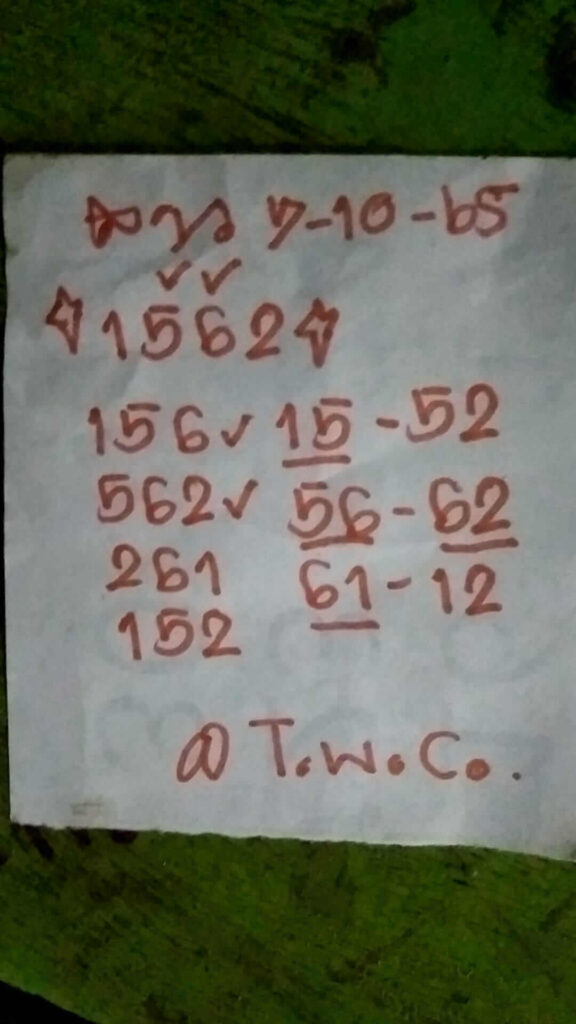 ลาว 7-10-65
1562
156✓ 15-52
562✓ 56-62
261 61-12
152
@T.W.C..